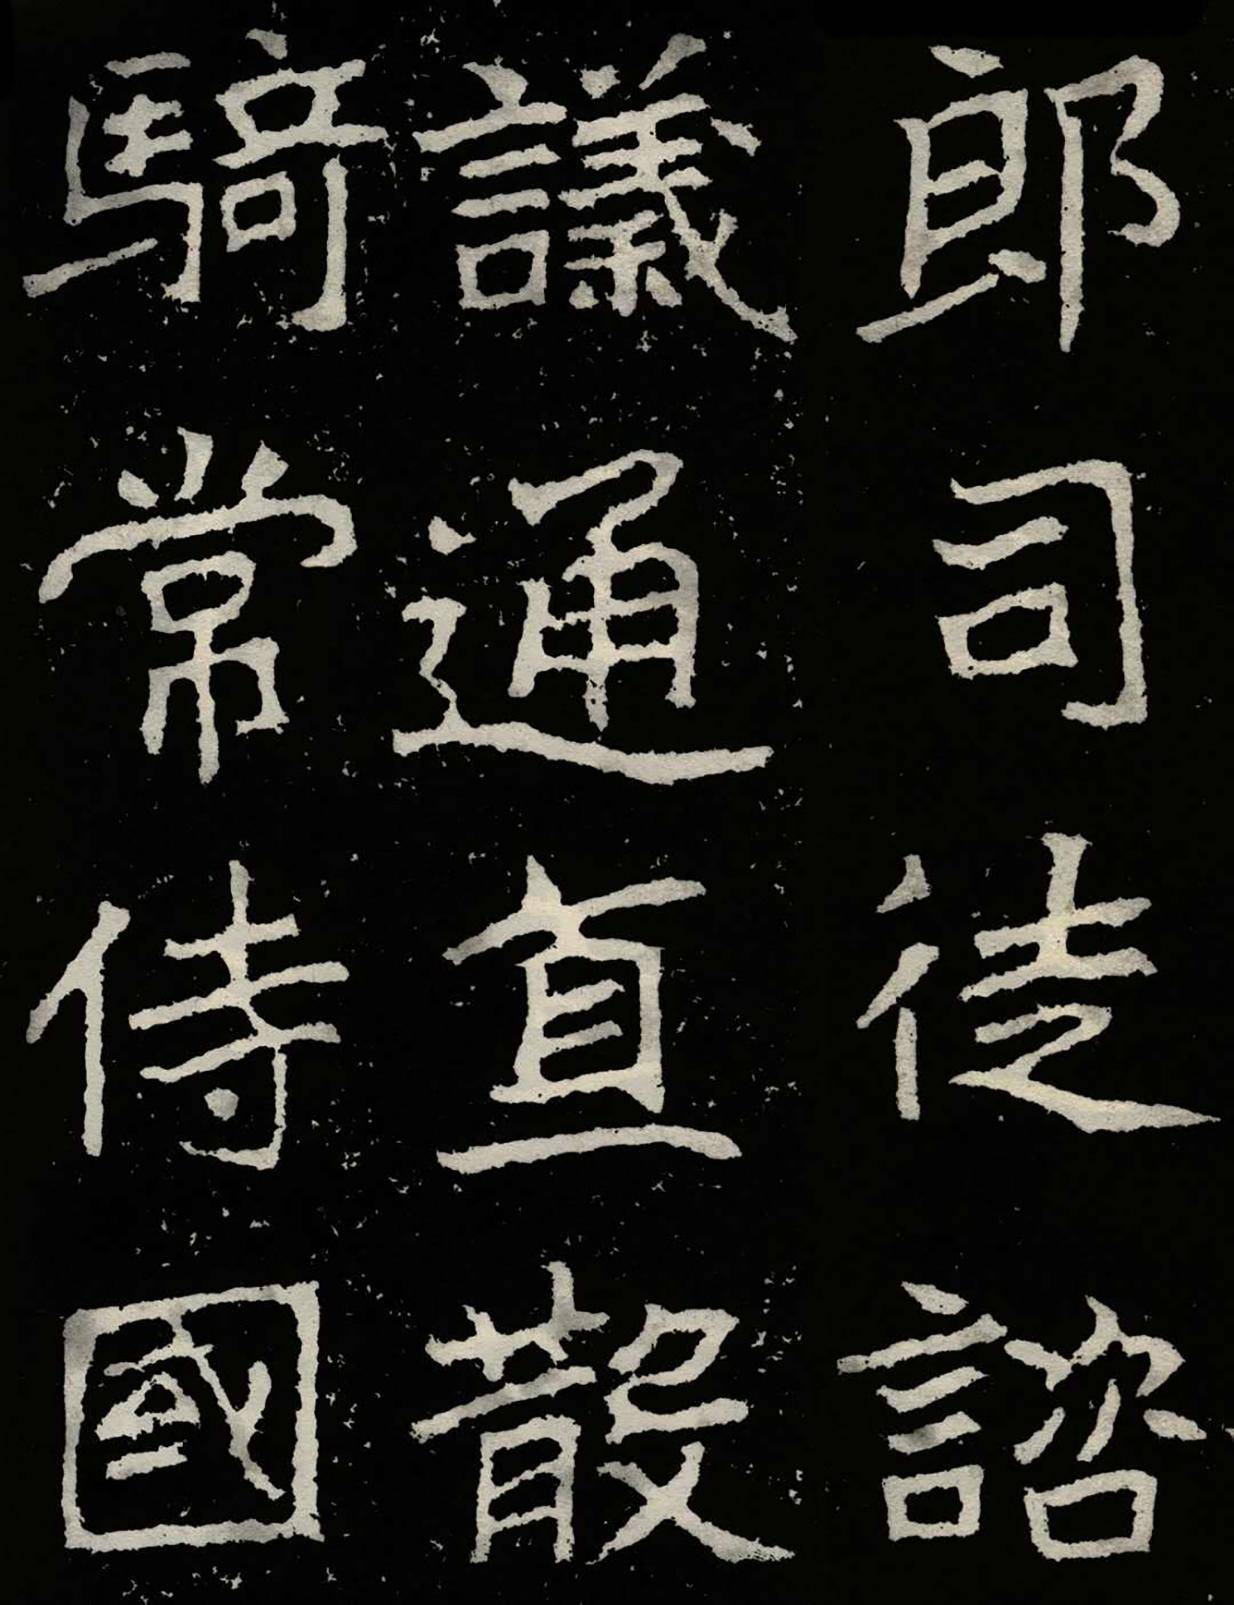 郎司徒諮
議通直散
騎常侍國